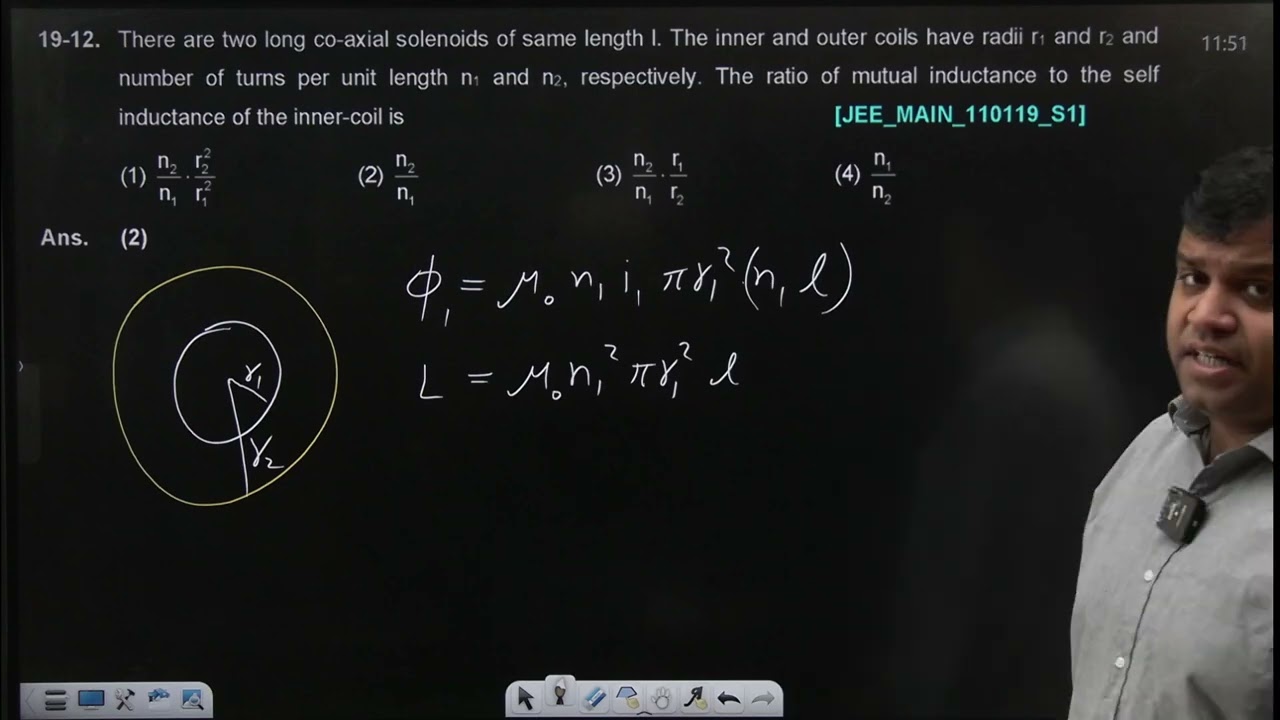 19-12. There are two long co-axial solenoids of same length l. The inner and outer coils have radii r₁ and r₂ and
11:51
number of turns per unit length n₁ and n₂, respectively. The ratio of mutual inductance to the self
inductance of the inner-coil is [JEE_MAIN_110119_S1]
(1) n₂/n₁ . r₂²/r₁² (2) n₂/n₁ (3) n₂/n₁ . r₁/r₂ (4) n₁/n₂
Ans. (2)
ϕ₁ = μ₀ n₁ i₁ πr₁² (n₁ l)
L = μ₀ n₁² πr₁² l
r₁
r₂